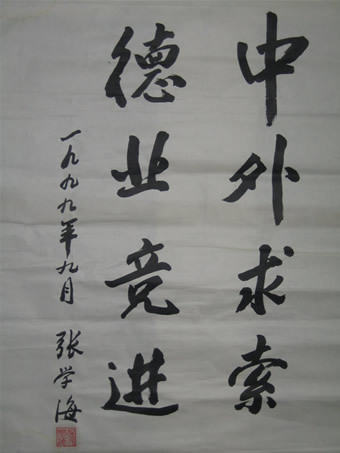 中外求索
德业竞进
一九九九年九月 张学海